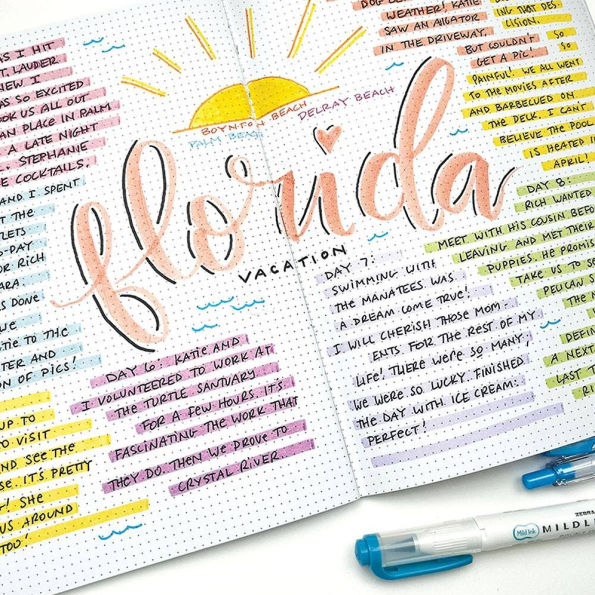 AS I HIT
T. LAUDER
NEW I
AS SO EXCITED
OOK US ALL OUT
AN PLACE IN PALM
A LATE NIGHT
STEPHANIE
E COCKTAILS.
AND I SPENT
T THE
LETS
D-DAY
OR RICH
ARA.
S DONE
TIE TO THE
TER AND
ON OF PICS!
UP TO
O VISIT
AND SEE THE
SE. IT'S PRETTY
! SHE
US AROUND
TOO!
BOYNTON BEACH
PALM BEACH
DELRAY BEACH
florida
VACATION
DAY 6: KATIE AND
I VOLUNTEERED TO WORK AT
THE TURTLE SANTUARY
FOR A FEW HOURS. IT'S
FASCINATING THE WORK THAT
THEY DO. THEN WE DROVE TO
CRYSTAL RIVER
WEATHER! KATIE
SAW AN ALLIGATOR
IN THE DRIVEWAY,
BUT COULDN'T
GET A PIC!
ING THAT DES
CISION.
SO SO
PAINFUL! WE ALL WENT
TO THE MOVIES AFTER
AND BARBECUED ON
THE DECK. I CAN'T
BELIEVE THE POOL
IS HEATED IN
APRIL!
DAY 7:
SWIMMING WITH
THE MANATEES WAS
A DREAM COME TRUE!
I WILL CHERISH THOSE MOM-
ENTS. FOR THE REST OF MY
LIFE! THERE WERE SO MANY,
WE WERE SO LUCKY. FINISHED
THE DAY WITH ICE CREAM:
PERFECT!
DAY 8:
RICH WANTED
MEET WITH HIS COUSIN BEFO
LEAVING AND MET THEIR
PUPPIES. HE PROMIS
TAKE US TO SE
PELICAN S
THE N
DEFIN
A NEXT
LAST T
RI
ZEBRA
Mild Ink MILDLI